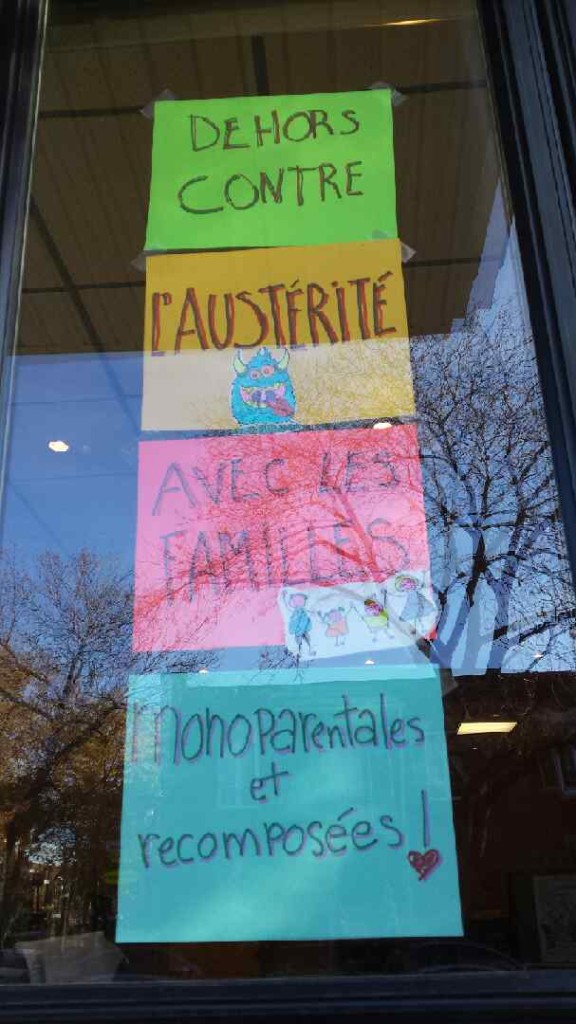 DEHORS
CONTRE
l'AUSTÉRITÉ
AVEC LES
FAMILLES
monoparentales
et
recomposées!